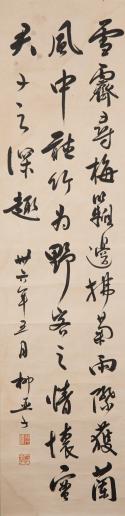 雪霽尋梅籬邊採菊雨際獲蘭
風中訪竹為野客之情懷實
君子之深趣
卅六年五月柳亞子